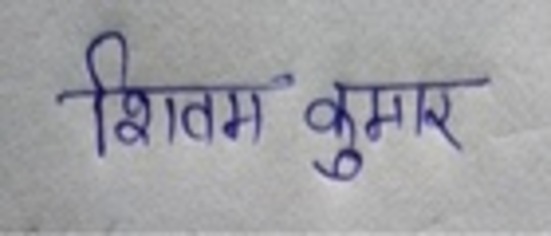 शितम कुमार